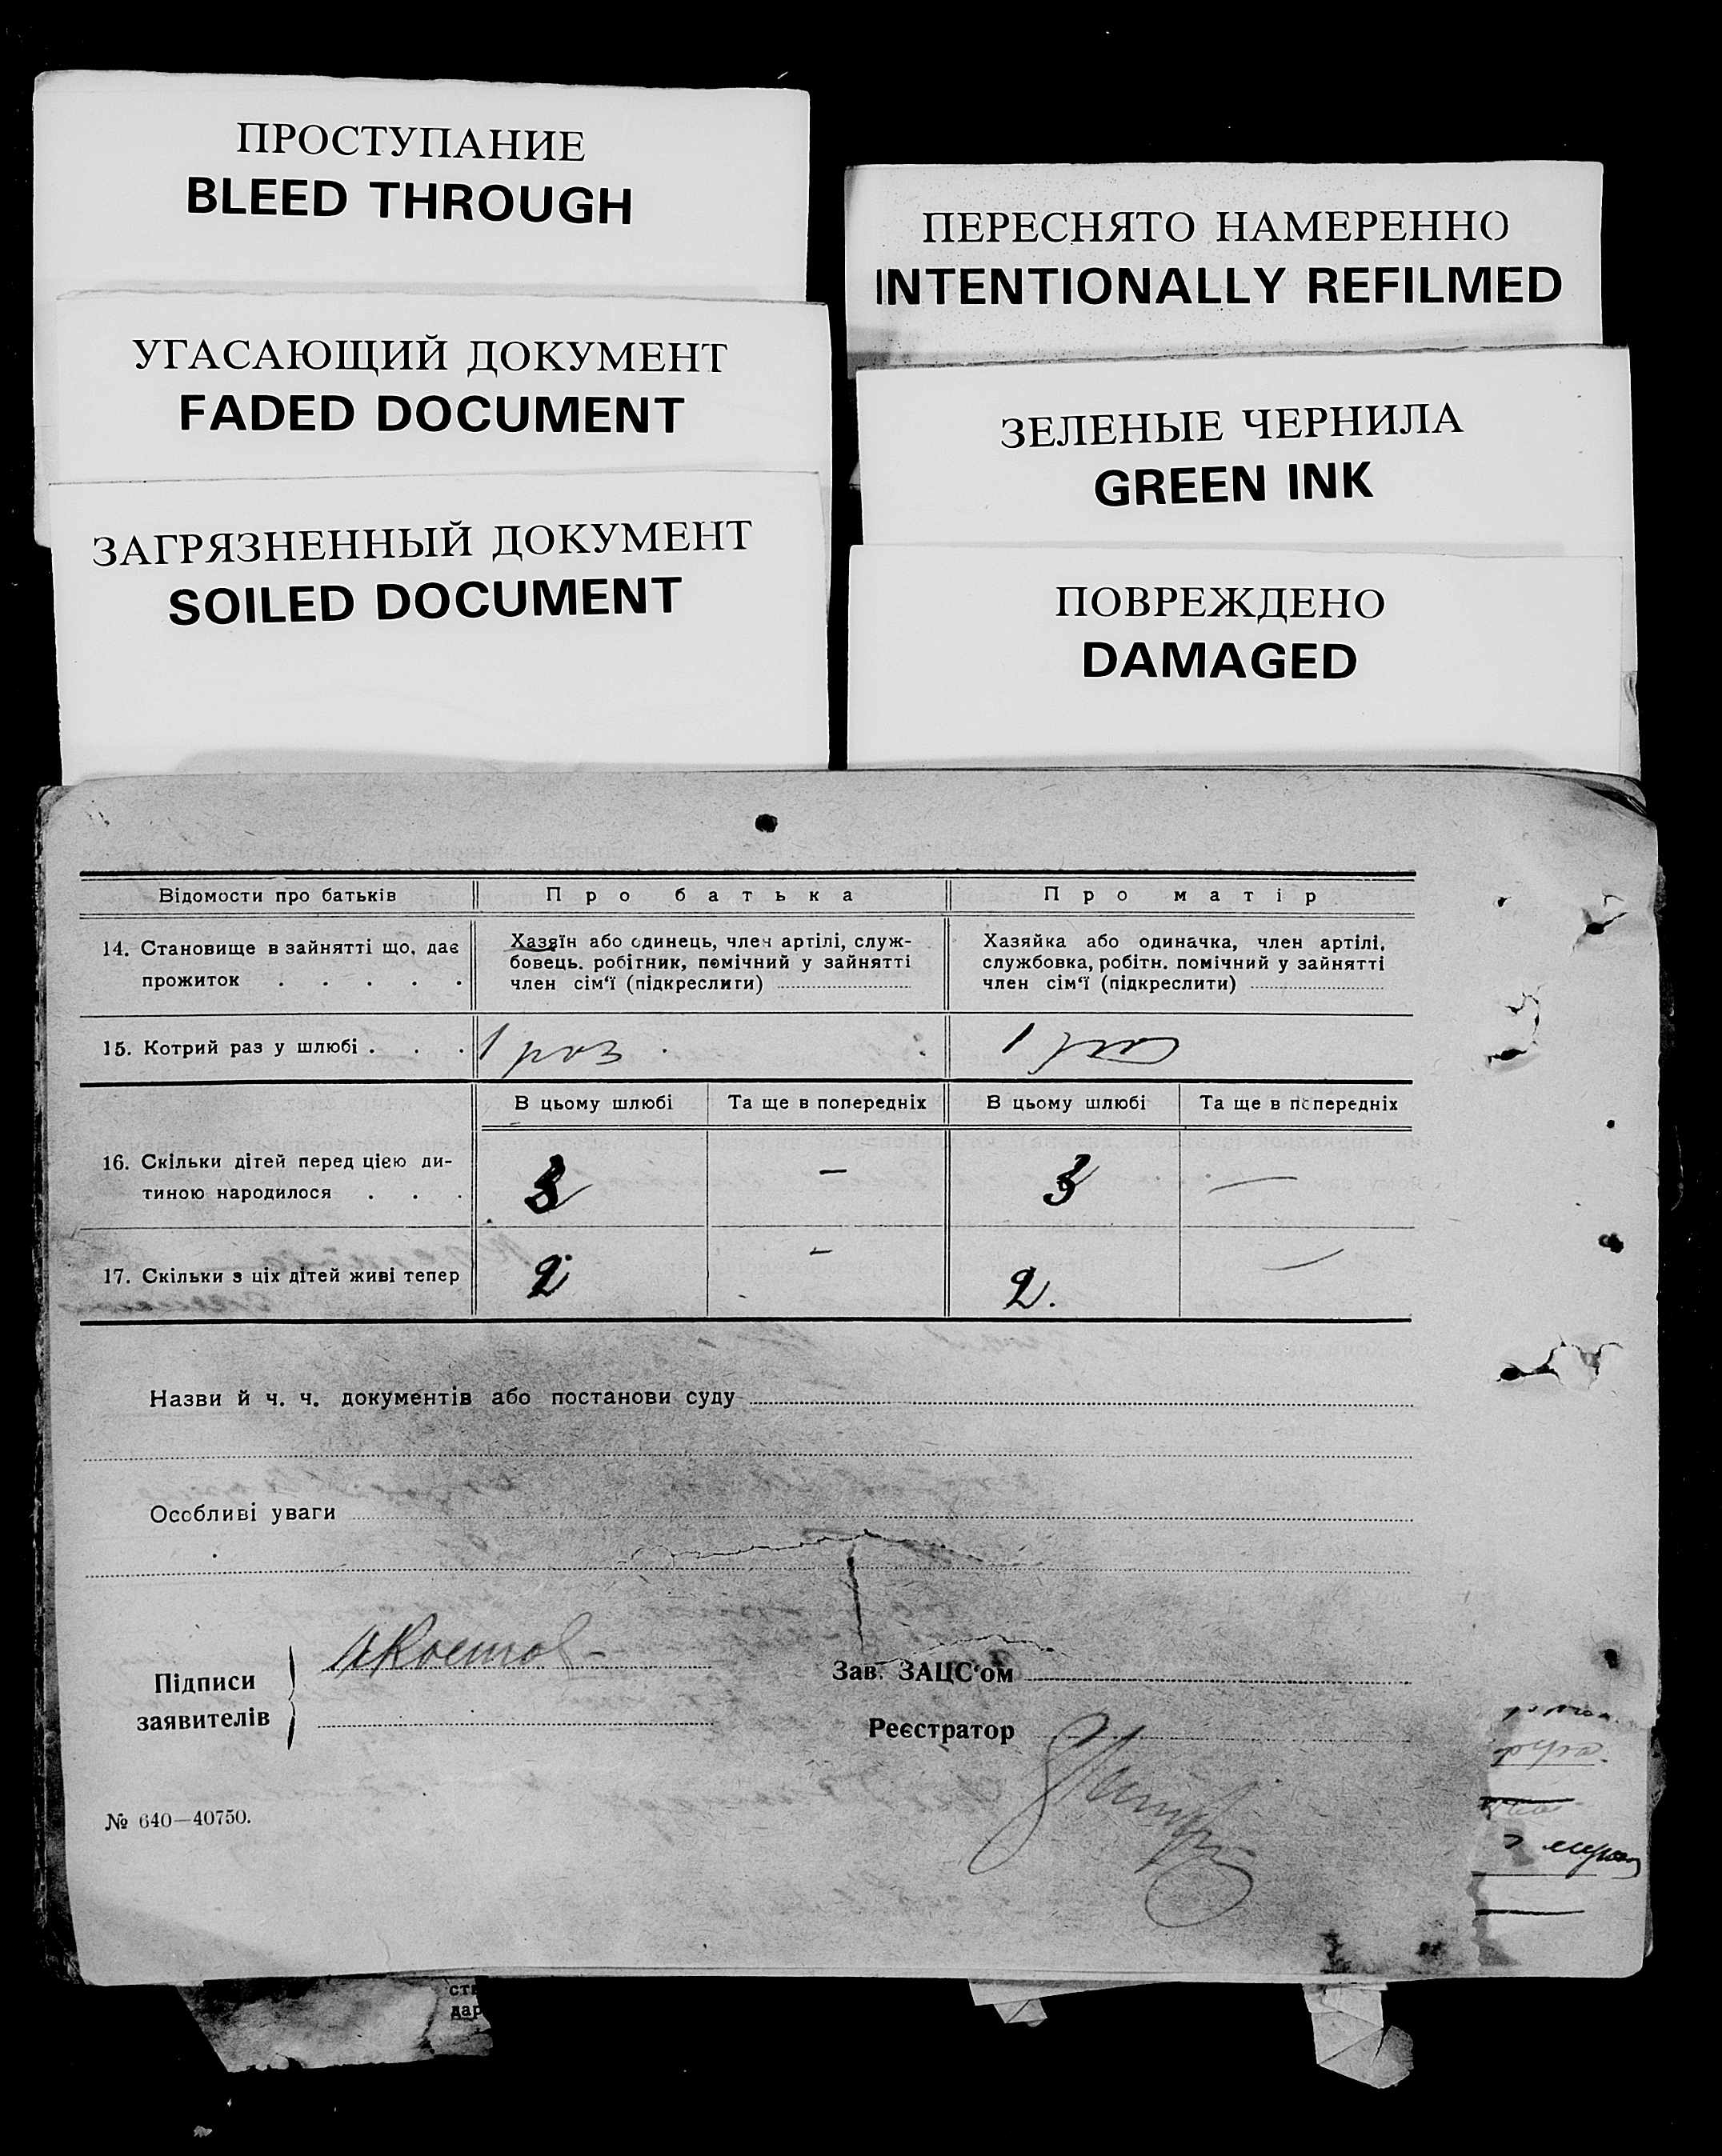 ПРОСТУПАНИЕ
BLEED THROUGH
УГАСАЮЩИЙ ДОКУМЕНТ
FADED DOCUMENT
ЗАГРЯЗНЕННЫЙ ДОКУМЕНТ
SOILED DOCUMENT
ПЕРЕСНЯТО НАМЕРЕННО
INTENTIONALLY REFILMED
ЗЕЛЕНЫЕ ЧЕРНИЛА
GREEN INK
ПОВРЕЖДЕНО
DAMAGED
Відомости про батьків Про батька Про матір
14. Становище в зайнятті що, дає
прожиток . . . . .
Хазяїн або одинець, член артілі, служ-
бовець. робітник, помічний у зайнятті
член сім'ї (підкреслити)
Хазяйка або одиначка, член артілі,
службовка, робітн. помічний у зайнятті
член сім'ї (підкреслити)
15. Котрий раз у шлюбі . . . 1 раз 1
В цьому шлюбі Та ще в попередніх В цьому шлюбі Та ще в попередніх
16. Скільки дітей перед цією ди-
тиною народилося . . .
3 — 3 —
17. Скільки з ціх дітей живі тепер 2 — 2. —
Назви й ч. ч. документів або постанови суду
Особливі уваги
Підписи
заявителів
Зав. ЗАЦС'ом
Реєстратор
№ 640—40750.